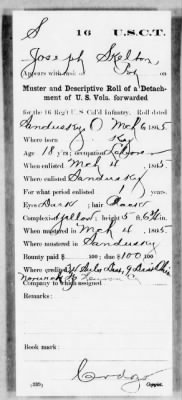 S 16 U.S.C.T.
Joseph Skelton
Appears with rank of Pvt on
Muster and Descriptive Roll of a Detach-
ment of U. S. Vols. forwarded
for the 16 Reg't U.S. Col'd Infantry. Roll dated
Sandusky O Mch 6, 1865
Where born Ky
Age 18 y'rs; occupation
When enlisted Mch 4, 1865
Where enlisted Sandusky
For what period enlisted 1 years.
Eyes Dark; hair Dark
Complexion Yellow; height 5 ft. in.
When mustered in Mch 4, 1865
Where mustered in Sandusky
Bounty paid $ 100; due $ 100
Where credited
Norwalk
Company to which assigned
Remarks:
Book mark:
(339) Copyist.